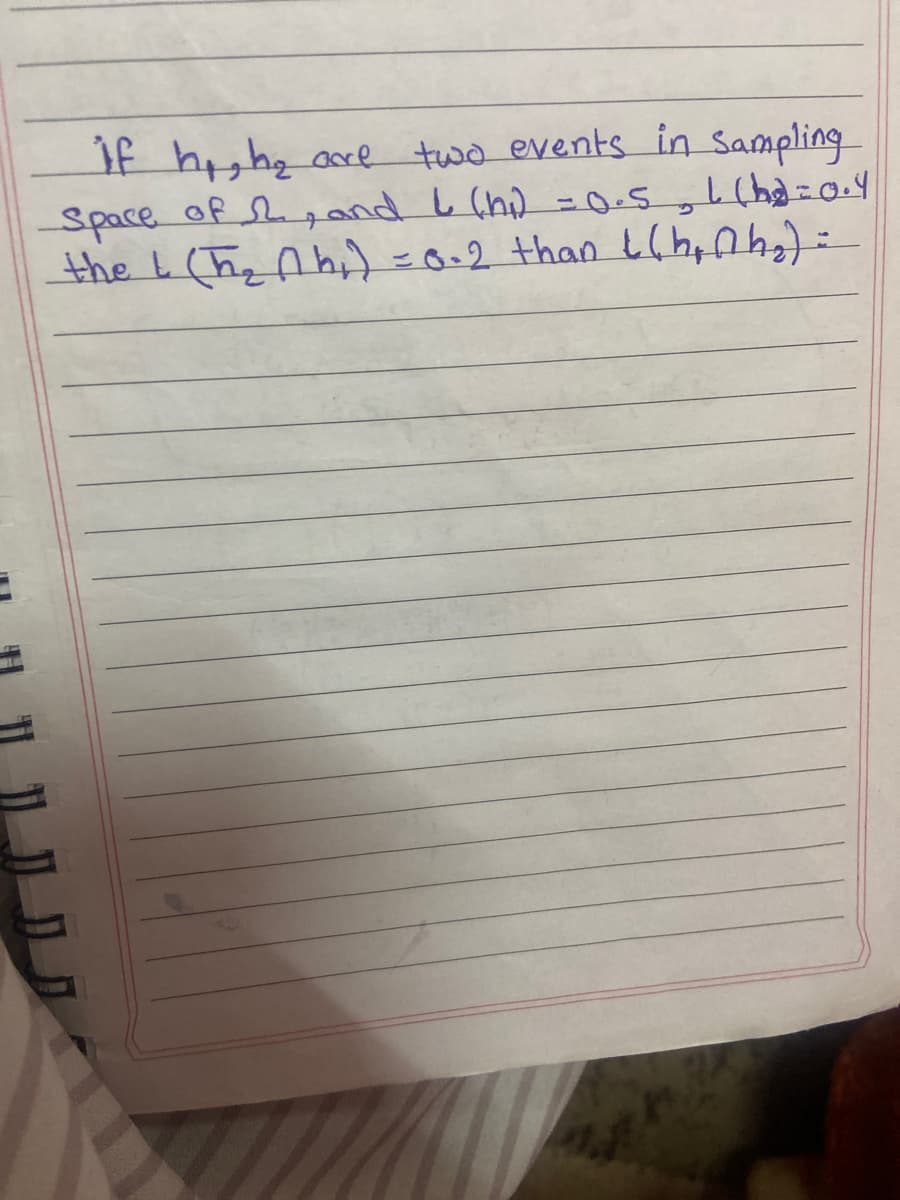 if h₁,h₂ are two events in sampling
space of Ω, and L(h₁) = 0.5, L(h₂)=0.4
the L(h̅₂∩h₁) = 0.2 than L(h₁∩h₂) =